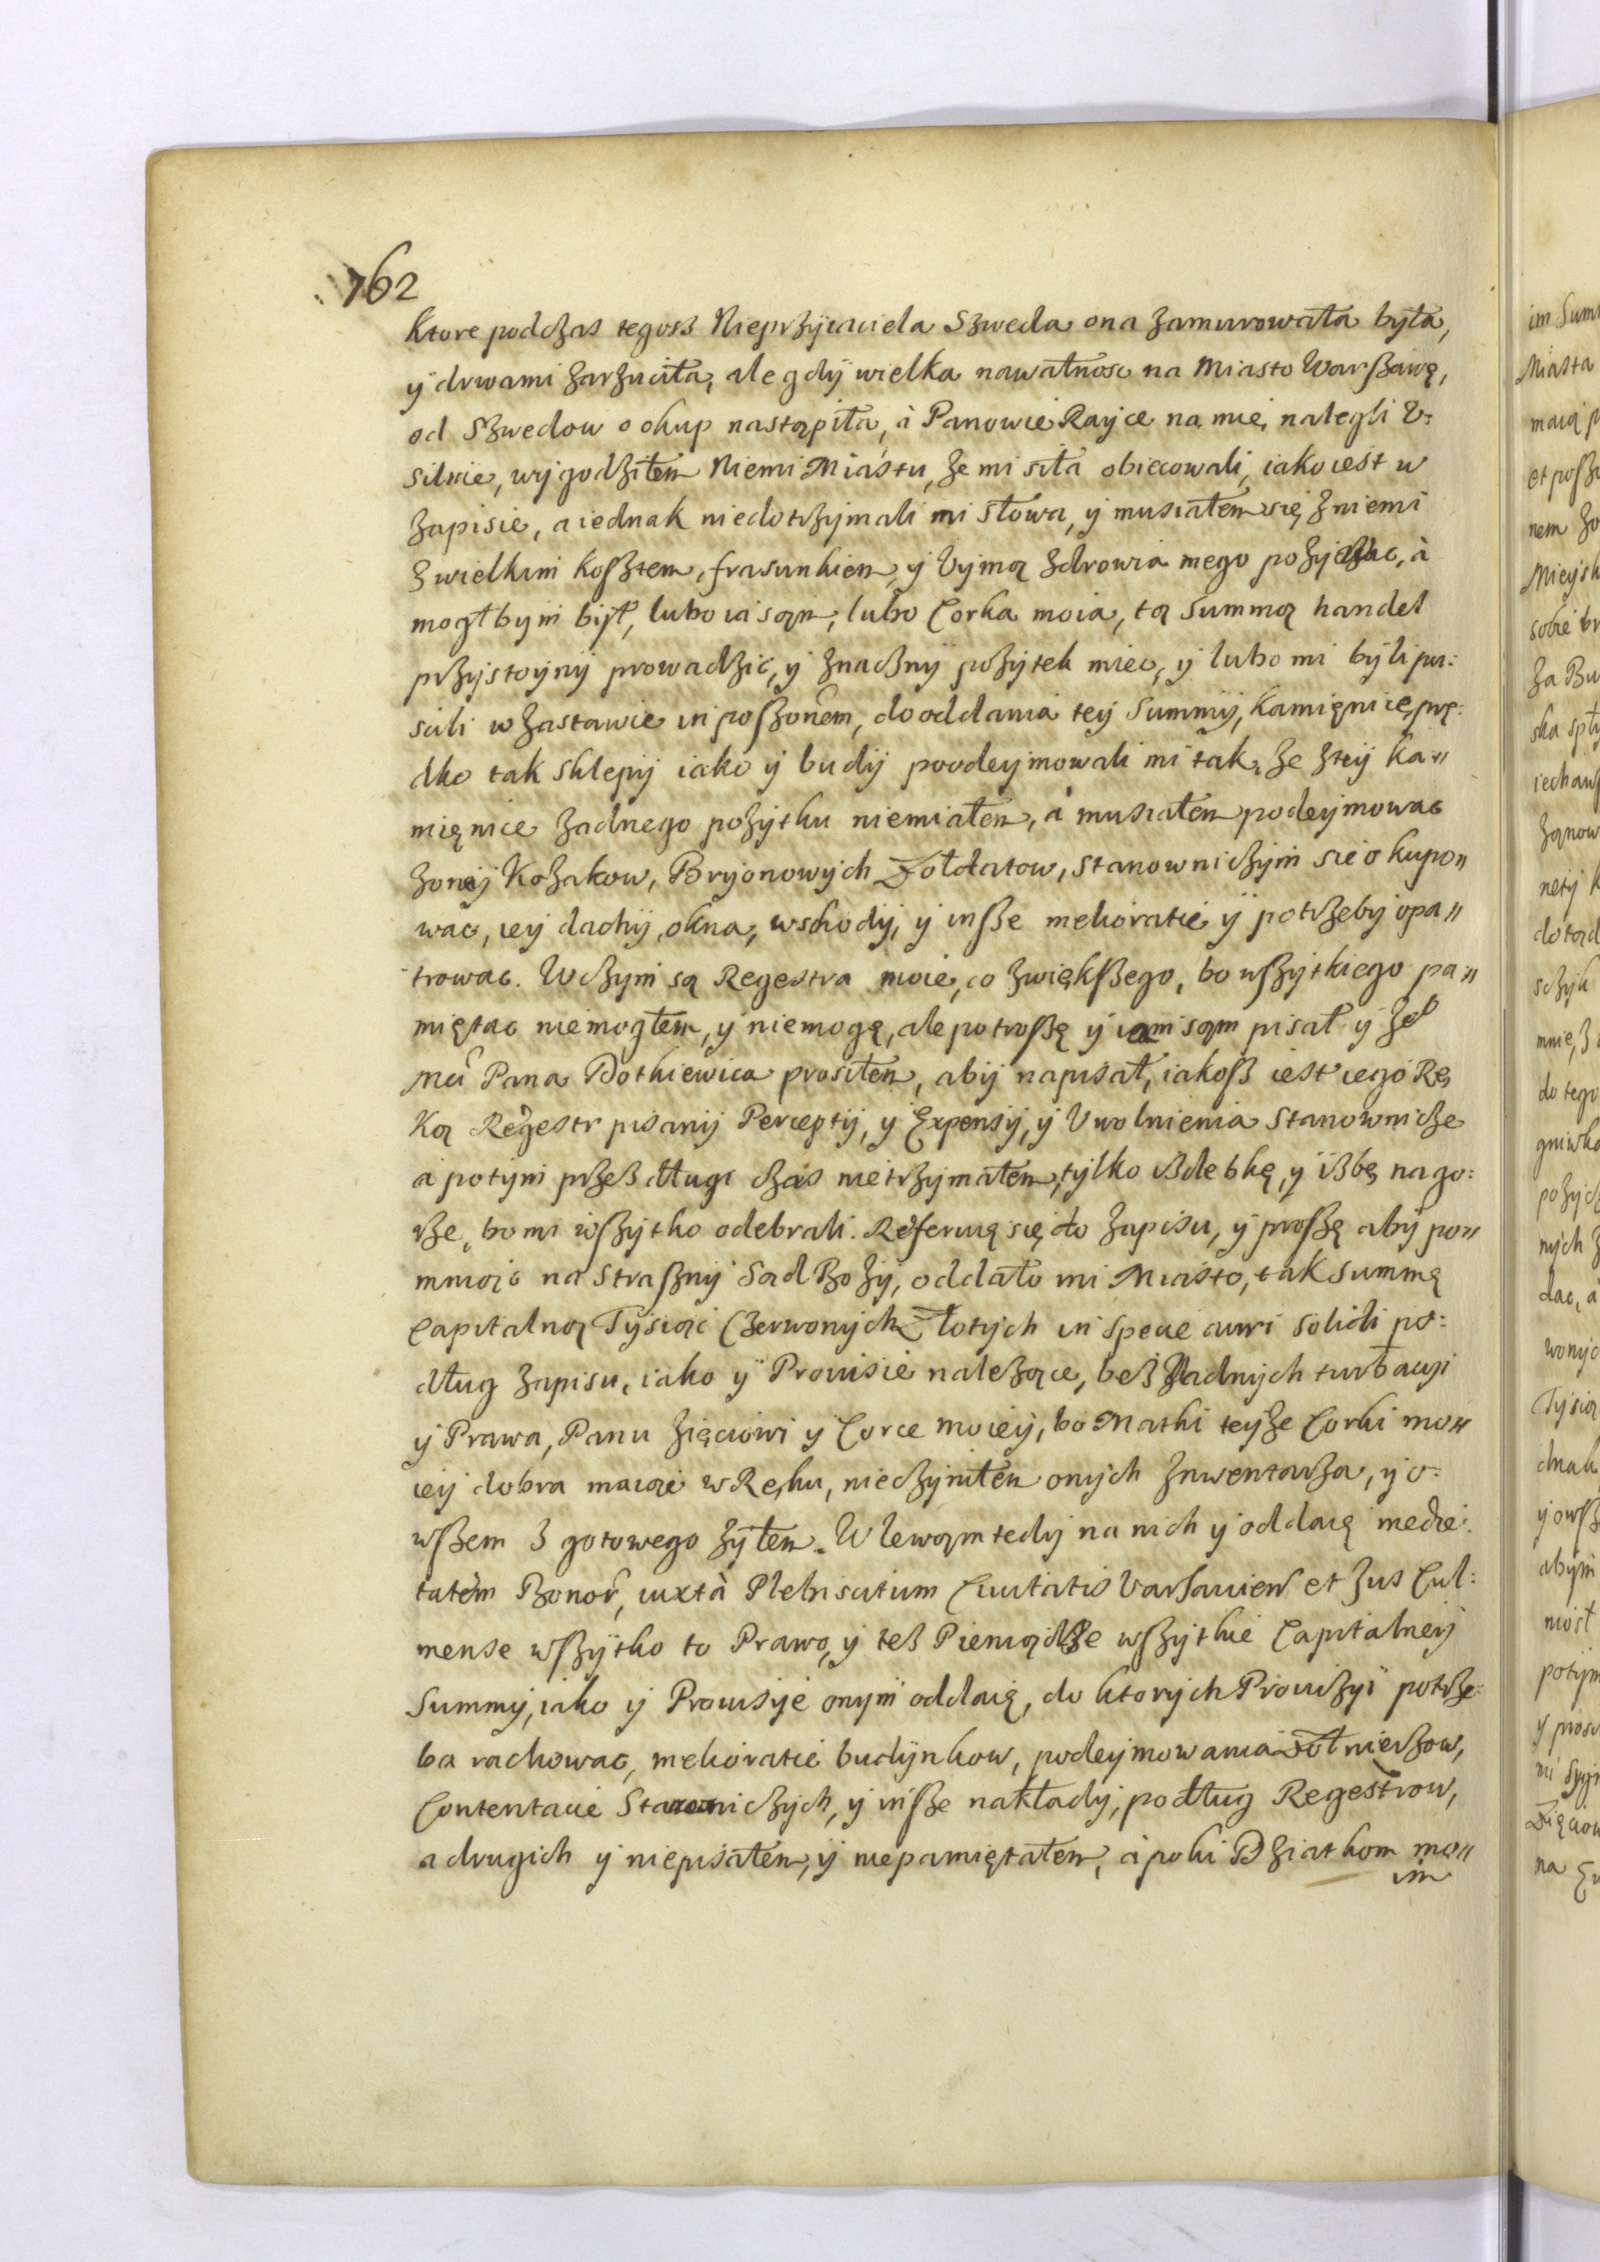 762
ktore podczas tegosz Nieprzyiaciela Szweda ona zamurowała była,
y drwami zarzuciła, ale gdy wielka nawałnosc na Miasto Warszawę,
od Szwedow o okup nastąpiła, à Panowie Rayce na mię nalegli V-
silnie, wygodziłem Niemi Miastu, że mi siła obiecowali, iako iest w
zapisie, a iednak niedotrzymali mi słowa, y musiałem się z niemi
z wielkim kosztem, frasunkiem, y Vymą zdrowia mego pozyczac, à
mogłbym był, lubo ia sąm, lubo Corka moia, tą Summą handel
przystoyny prowadzic, y znaczny pożytek miec, y lubo mi byli pu-
scili w zastawie in poszonem, do oddania tey Summy, kamięnicę, prę-
dko tak sklepy iako y budy poodeymowali mi tak, że z tey Ka"
mięnice żadnego pożytku niemiałem, à musiałem podeymowac
z oney Kozakow, Bryonowych Żołdatow, stanowniczym się okupo"
wac, iey dachy, okna, wschody, y insze melioratie y potrzeby opa"
trowac. W czym są Regestra moie, co zwiększego, bo wszytkiego pa"
miętac niemogłem, y niemogę, ale potroszę y sąm pisał y
Pana Dotkiewica prosiłem, aby napisał, iakosz iest iego Rę
ką Regestr pisany Percepty, y Expensy, y Vwolnienia Stanownicze
à potym przez długi czas nietrzymałem, tylko izdebkę, y izbę na go-
rze, bo mi wszytko odebrali. Referuię się do zapisu, y proszę aby po"
mniąc na straszny Sąd Boży, oddało mi Miasto, tak Summę
Capitalną Tysiąc Czerwonych Złotych in specie auri solidi po-
dług zapisu, iako y Prouisie należące, bez żadnych turbacyi
y Prawa, Panu Zięciowi y Corce moiey, bo Matki teyże Corki mo"
iey dobra maiąc w Ręku, nieczyniłem onych Inwentarza, y o-
wszem z gotowego żyłem. Wlewąm tedy na nich y oddaię medie-
tatem Bonor, iuxtà Plebiscitum Ciuitatis Varsauien et Jus Cul-
mense wszytko to Prawo, y tesz Pieniądze wszytkie Capitalney
Summy, iako y Prouisye onym oddaię, do ktorych Prouizyi potrze-
ba rachowac, melioratie budynkow, podeymowania żołnierzow,
Contentacie Stanowniczych, y insze nakłady, podług Regestrow,
a drugich y niepisałem, y niepamiętałem, à poki Dziatkom mo"
im